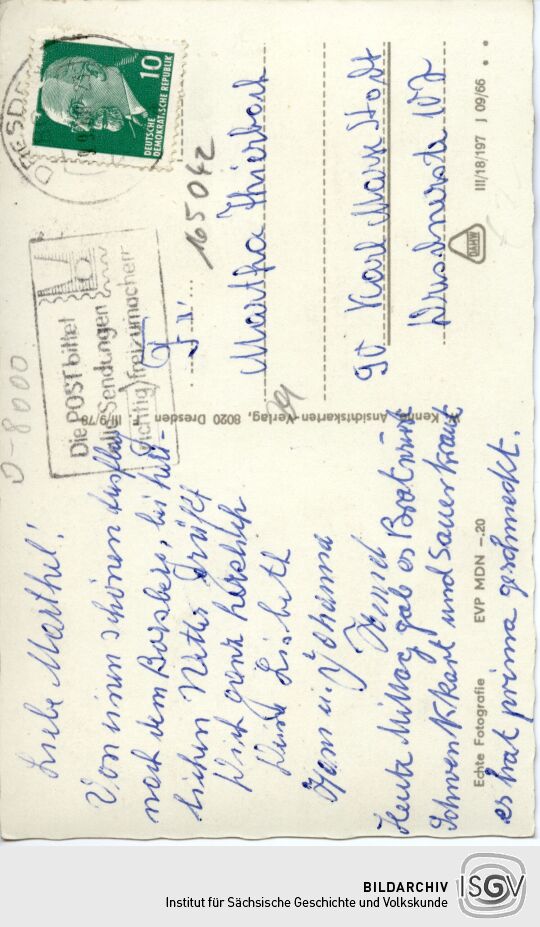 Liebe Marthel!
Von einem schönen Ausflug
nach dem Borsberg, bei herr-
lichen Wetter grüßt
Dich ganz herzlich
Deine Lisbeth
Hans u. Johanna
Heute Mittag gab es Bratwurst
Schwenkkart und Sauerkraut
es hat prima geschmeckt.
Echte Fotografie EVP MDN –.20
Kenne, Ansichtskarten-Verlag, 8020 Dresden III/9/78
DRESDEN
10
DEUTSCHE
DEMOKRATISCHE REPUBLIK
Die POST bittet
alle Sendungen
richtig freizumachen
D-8000
165042
Martha Thierbach
90 Karl Marx Stadt
Dresdnerstr
DAHW
III/18/197 J 09/66
BILDARCHIV
Institut für Sächsische Geschichte und Volkskunde
ISGV